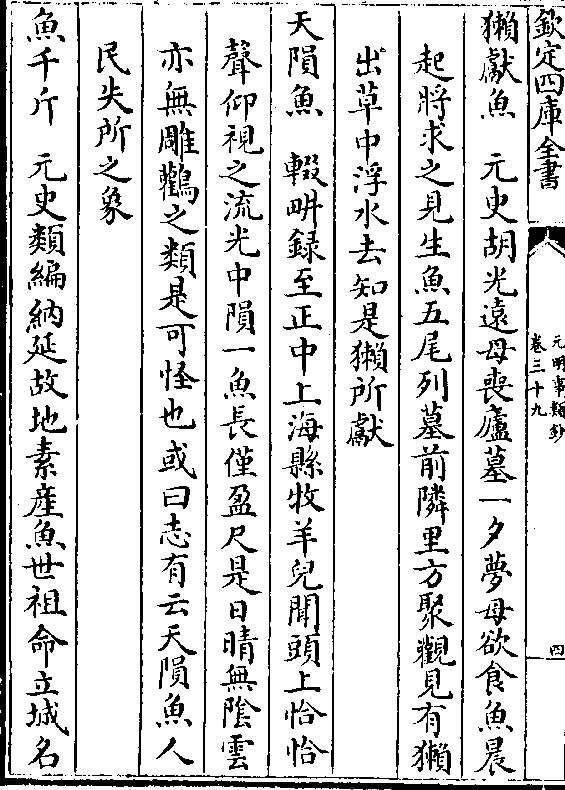 欽定四庫全書
元明事類鈔
卷三十九
四
獺獻魚　元史胡光遠母喪廬墓一夕夢母欲食魚晨
起將求之見生魚五尾列墓前隣里方聚觀見有獺
出草中浮水去知是獺所獻
天隕魚　輟畊録至正中上海縣牧羊兒聞頭上恰恰
聲仰視之流光中隕一魚長僅盈尺是日晴無陰雲
亦無雕鸛之類是可怪也或曰志有云天隕魚人
民失所之象
魚千斤　元史類編納延故地素産魚世祖命立城名